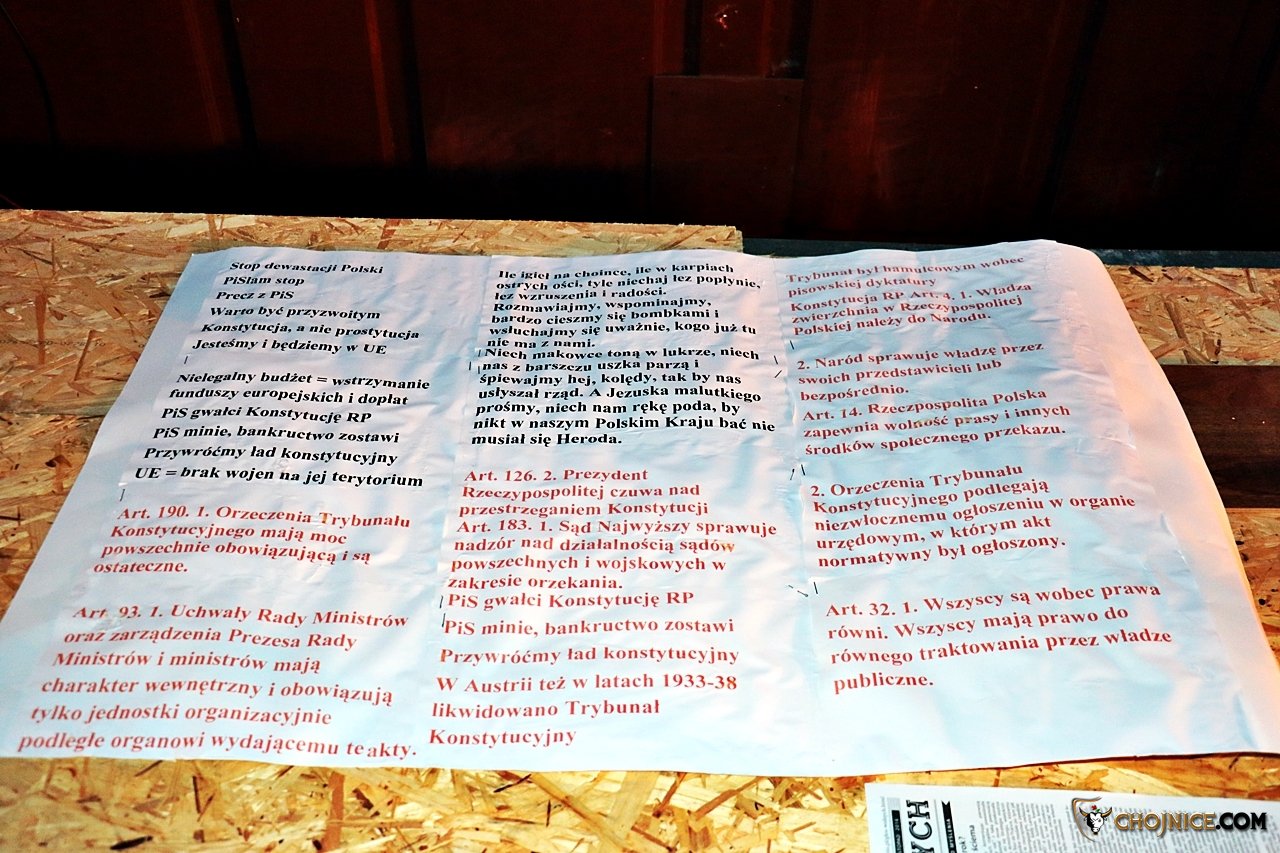 Stop dewastacji Polski
PiStam stop
Precz z PiS
Warto być przyzwoitym
Konstytucja, a nie prostytucja
Jesteśmy i będziemy w UE
Nielegalny budżet = wstrzymanie
funduszy europejskich i dopłat
PiS gwałci Konstytucję RP
PiS minie, bankructwo zostawi
Przywróćmy ład konstytucyjny
UE = brak wojen na jej terytorium
Art. 190. 1. Orzeczenia Trybunału
Konstytucyjnego mają moc
powszechnie obowiązującą i są
ostateczne.
Art. 93. 1. Uchwały Rady Ministrów
oraz zarządzenia Prezesa Rady
Ministrów i ministrów mają
charakter wewnętrzny i obowiązują
tylko jednostki organizacyjnie
podległe organowi wydającemu te akty.
Ile igieł na choince, ile w karpiach
ostrych ości, tyle niechaj łez popłynie,
łez wzruszenia i radości.
Rozmawiajmy, wspominajmy,
bardzo cieszmy się bombkami i
wsłuchajmy się uważnie, kogo już tu
nie ma z nami.
Niech makowce toną w lukrze, niech
nas z barszczu uszka parzą i
śpiewajmy hej, kolędy, tak by nas
usłyszał rząd. A Jezuska malutkiego
prośmy, niech nam rękę poda, by
nikt w naszym Polskim Kraju bać nie
musiał się Heroda.
Art. 126. 2. Prezydent
Rzeczypospolitej czuwa nad
przestrzeganiem Konstytucji
Art. 183. 1. Sąd Najwyższy sprawuje
nadzór nad działalnością sądów
powszechnych i wojskowych w
zakresie orzekania.
PiS gwałci Konstytucję RP
PiS minie, bankructwo zostawi
Przywróćmy ład konstytucyjny
W Austrii też w latach 1933-38
likwidowano Trybunał
Konstytucyjny
Trybunał był hamulcowym wobec
pisowskiej dyktatury
Konstytucja RP Art. 4. 1. Władza
zwierzchnia w Rzeczypospolitej
Polskiej należy do Narodu.
2. Naród sprawuje władzę przez
swoich przedstawicieli lub
bezpośrednio.
Art. 14. Rzeczpospolita Polska
zapewnia wolność prasy i innych
środków społecznego przekazu.
2. Orzeczenia Trybunału
Konstytucyjnego podlegają
niezwłocznemu ogłoszeniu w organie
urzędowym, w którym akt
normatywny był ogłoszony.
Art. 32. 1. Wszyscy są wobec prawa
równi. Wszyscy mają prawo do
równego traktowania przez władze
publiczne.
YCH
CHOJNICE.COM